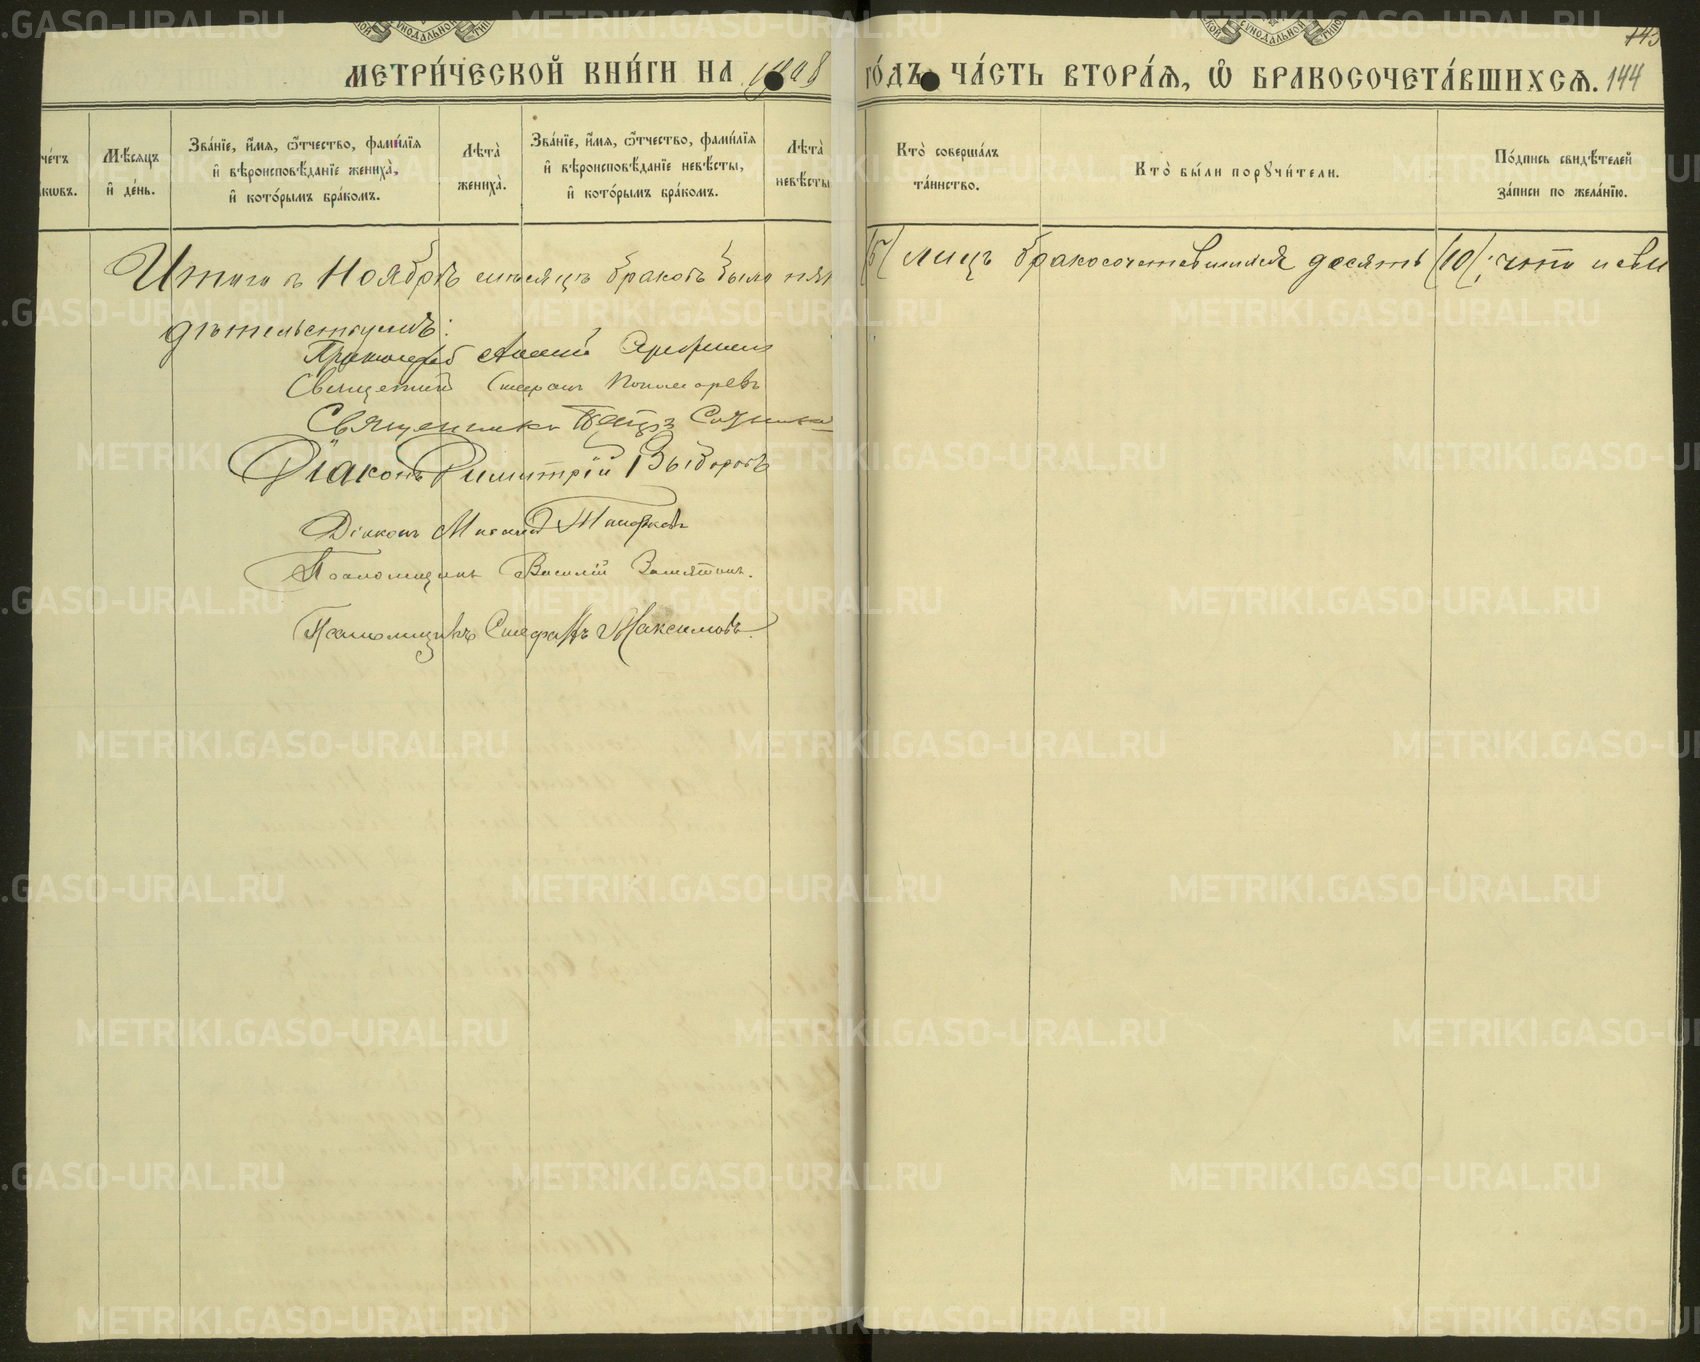 МЕТРИ́ЧЕСКОЙ КНИ́ГИ НА 1908 ГО́ДЪ ЧА́СТЬ ВТОРА́Я, Ѡ҆ БРАКОСОЧЕТА́ВШИХСѦ. 144
143
че́тъ
ковъ.
Мѣ́сѧцъ
и҆ де́нь.
Зва́нїе, и҆́мѧ, ѻ҆́тчество, фами́лїѧ
и҆ вѣроисповѣ́данїе жениха̀,
и҆ кото́рымъ бра́комъ.
Лѣта̀
жениха̀.
Зва́нїе, и҆́мѧ, ѻ҆́тчество, фами́лїѧ
и҆ вѣроисповѣ́данїе невѣ́сты,
и҆ кото́рымъ бра́комъ.
Лѣта̀
невѣ́сты
Кто̀ соверша́лъ
та́инство.
Кто̀ бы́ли порꙋчи́тели.
По́дпись свидѣ́телей
за́писи по жела́нїю.
Итого въ Ноябрѣ мѣсяцѣ браковъ было пят /5/ лицъ бракосочетавшихся десять /10/; что и сви
дѣтельствуемъ:
Священникъ Стефанъ Пономаревъ
Священникъ Петръ
Діаконъ Димитрій Выборовъ
Діаконъ
Псаломщикъ Василій Замятинъ.
Псаломщикъ Стефанъ Максимовъ.
METRIKI.GASO-URAL.RU